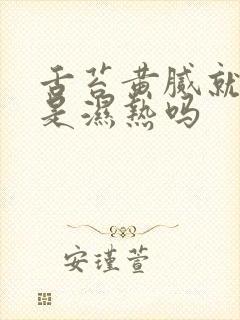 舌苔黄腻就
是濕熱吗
安瑾萱